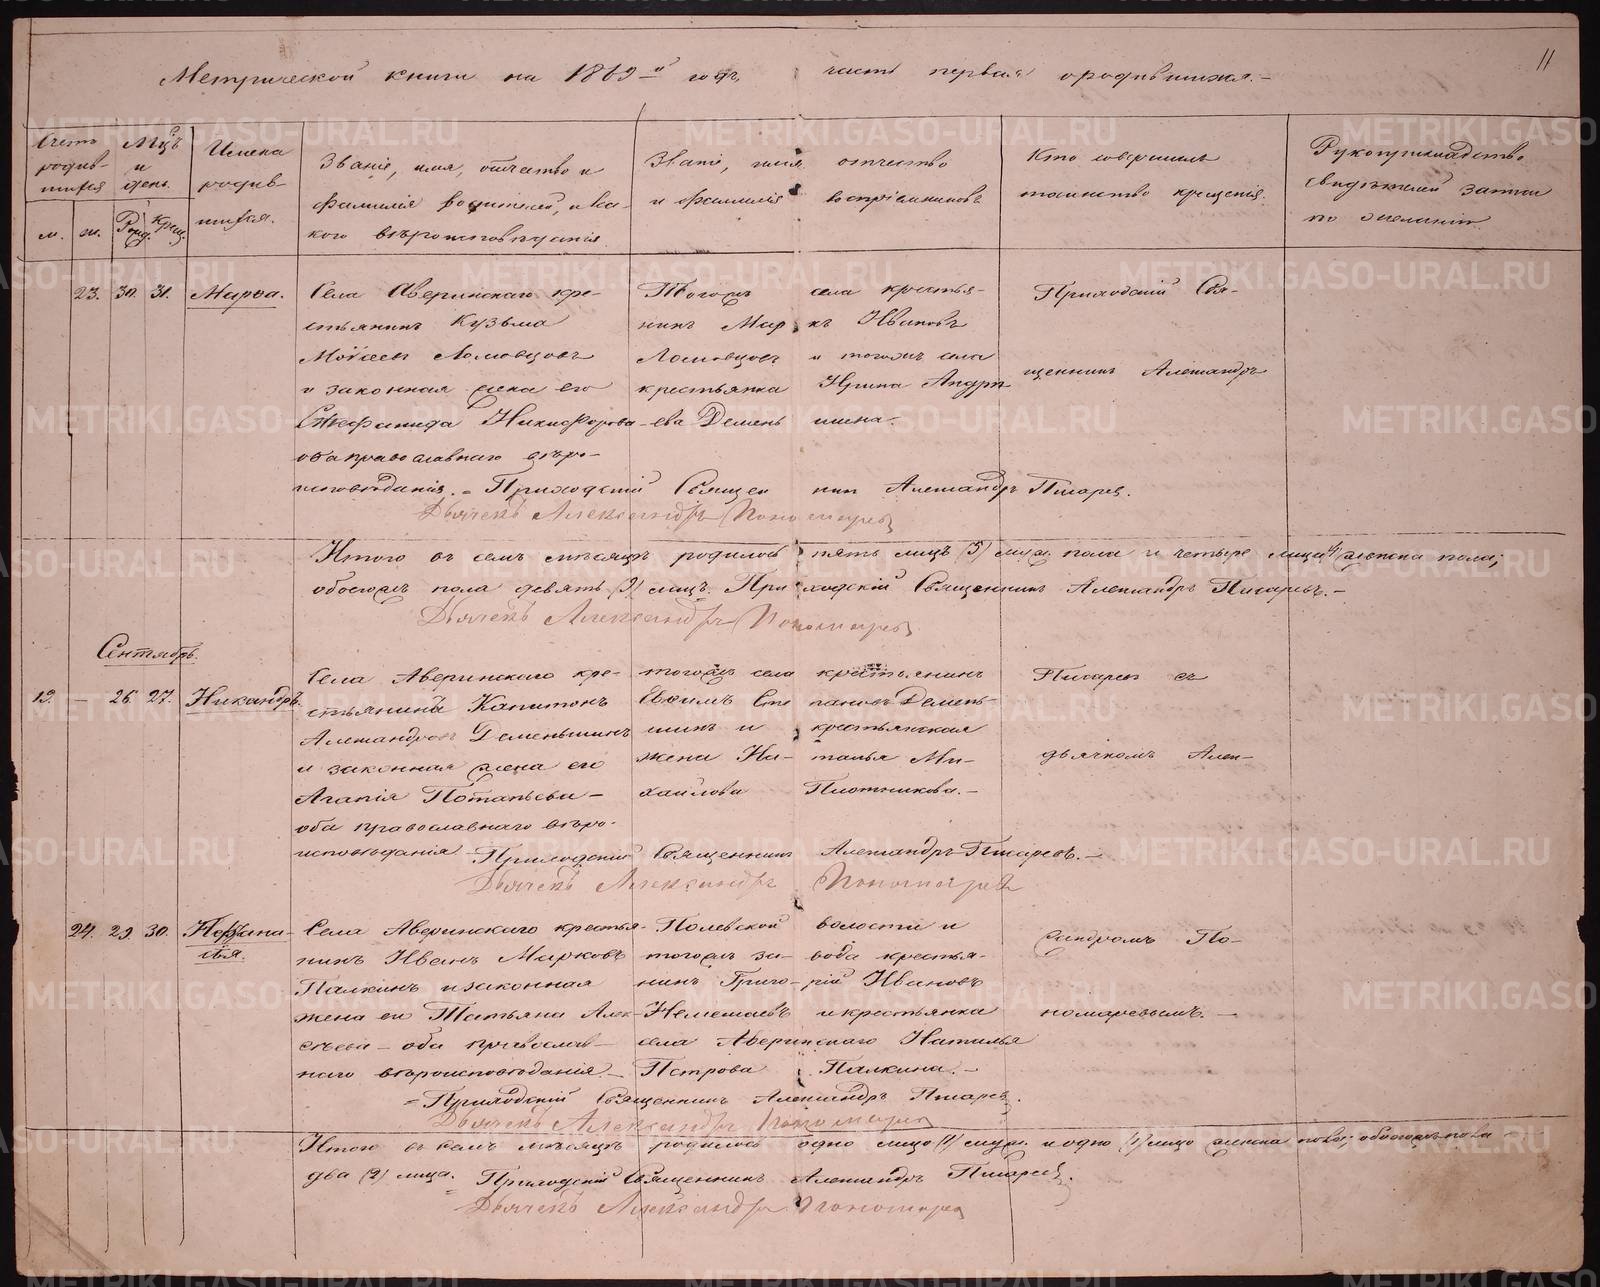 11
Метрической книги на 1869й годъ, часть первая о родившихся.-
Счетъ родив-шихся
м. ж.
Мѣсяцъ и день.
Рожд. Крещ.
Имена родив-шихся.
Званіе, имя, отчество и
фамилія родителей, и ка-
кого вѣроисповѣданія
Званіе, имя, отчество
и фамилія воспріемниковъ
Кто совершилъ
таинство крещенія.
Рукоприкладство
свидѣтелей записи
по желанію.
23. 30. 31. Марѳа.
Села Аверинскаго кре-
стьянинъ Кузьма
Моѵсеевъ Ломовцовъ
и законная жена его
Стефанида Никифорова
оба православнаго вѣро-
исповѣданія. =
Тогожъ села крестья-
нинъ Маркъ Ивановъ
Ломовцовъ и тогожъ села
крестьянка Ирина Андрі-
ева Деменьшина.
Приходскій Свя-
щенникъ Александръ
Приходскій Священникъ Александръ Писарев.
Дьячекъ Александръ Пономаревъ
Итого въ семъ мѣсяцѣ родилось пять лицъ (5) муж. пола и четыре лица (4) женска пола;
обоегожъ пола девять (9) лицъ. Приходскій Священникъ Александръ Писаревъ.-
Дьячекъ Александръ Пономаревъ
Сентябрь.
12. — 26. 27. Никандръ.
Села Аверинскаго кре-
стьянинъ Капитонъ
Александровъ Деменьшинъ
и законная жена его
Агапія Потапьева -
оба православнаго вѣро-
исповѣданія
тогожъ села крестьянинъ
Евфимъ Степановъ Демень-
шинъ и крестьянская
жена Наталья Ми-
хайлова Плотникова.-
Писаревъ съ
дьячкомъ Алек-
Приходскій Священникъ Александръ Писаревъ.-
Дьячекъ Александръ Пономаревъ
24. 29. 30.
Села Аверинскаго крестья-
нинъ Иванъ Марковъ
Палкинъ и законная
жена его Татьяна Алек-
сѣева - оба православ-
наго вѣроисповѣданія.-
Полевской волости и
тогожъ завода крестья-
нинъ Григорій Ивановъ
и крестьянка
села Аверинскаго Наталья
Петрова Палкина.-
сандромъ По-
номаревымъ. -
= Приходскій Священникъ Александръ Писарев.
Дьячекъ Александръ Пономарев
Итого въ семъ мѣсяцѣ родилось одно лицо (1) муж. и одно (1) лицо женска пола; обоегожъ пола -
два (2) лица. = Приходскій Священникъ Александръ Писарев.
Дьячекъ Александръ Пономарев
METRIKI.GASO-URAL.RU